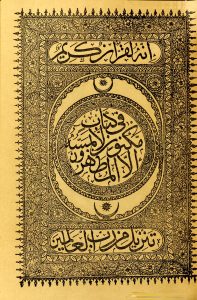 انه لقرآن كريم
في كتاب مكنون لا يمسه الا المطهرون
تنزيل من رب العالمين